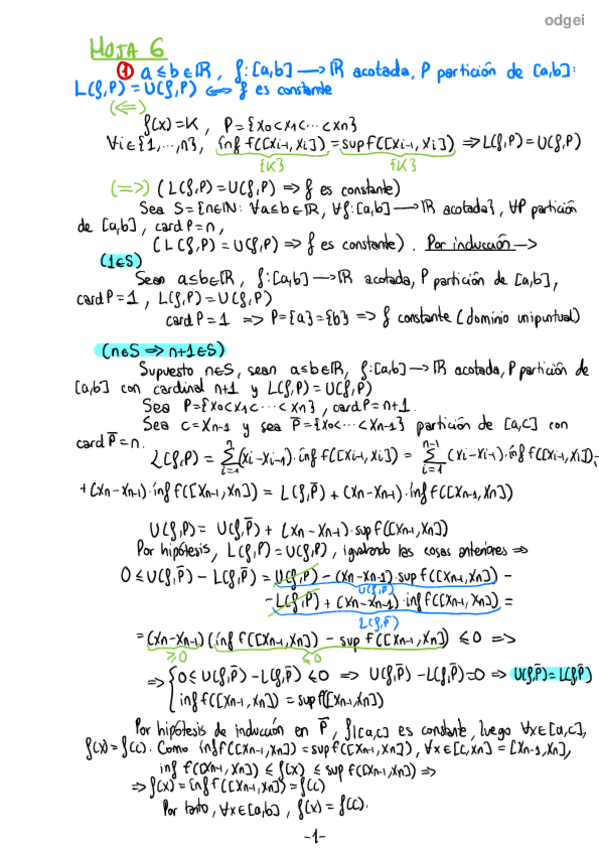 odgei
HOJA 6
① a ≤ b ∈ ℝ, f: [a,b] ⟶ ℝ acotada, P partición de [a,b]:
L(f,P) = U(f,P) ⟺ f es constante
(⇐)
f(x) = K, P = {x₀ < x₁ < ⋯ < xn}
∀i ∈ {1, ..., n}, inf f([xi-1, xi]) = sup f([xi-1, xi]) ⇒ L(f,P) = U(f,P)
{K} {K}
(⇒) (L(f,P) = U(f,P) ⇒ f es constante)
Sea S = {n∈ℕ: ∀a≤b∈ℝ, ∀f: [a,b] ⟶ ℝ acotada}, ∀P partición
de [a,b], card P = n,
(L(f,P) = U(f,P) ⇒ f es constante). Por inducción ⟶
(1∈S)
Sean a≤b∈ℝ, f: [a,b] ⟶ ℝ acotada, P partición de [a,b],
card P = 1, L(f,P) = U(f,P)
card P = 1 ⇒ P = {a} = {b} ⇒ f constante (dominio unipuntual)
(n∈S ⇒ n+1∈S)
Supuesto n∈S, sean a≤b∈ℝ, f: [a,b] ⟶ ℝ acotada, P partición de
[a,b] con cardinal n+1 y L(f,P) = U(f,P)
Sea P = {x₀ < x₁ < ⋯ < xn}, card P = n+1.
Sea c = xn-1 y sea P̄ = {x₀ < ⋯ < xn-1} partición de [a,c] con
card P̄ = n.
L(f,P) = Σ_{i=1}^{n} (xi - xi-1) · inf f([xi-1, xi]) = Σ_{i=1}^{n-1} (xi - xi-1) · inf f([xi-1, xi]) +
+ (xn - xn-1) · inf f([xn-1, xn]) = L(f,P̄) + (xn - xn-1) · inf f([xn-1, xn])
U(f,P) = U(f,P̄) + (xn - xn-1) · sup f([xn-1, xn])
Por hipótesis, L(f,P) = U(f,P), igualando las cosas anteriores ⇒
0 ≤ U(f,P̄) - L(f,P̄) = U(f,P) - (xn - xn-1) · sup f([xn-1, xn]) -
U(f,P̄)
- L(f,P) + (xn - xn-1) · inf f([xn-1, xn]) =
L(f,P̄)
= (xn - xn-1) (inf f([xn-1, xn]) - sup f([xn-1, xn]) ≤ 0 ⇒
≥0 ≤0
⇒ { 0 ≤ U(f,P̄) - L(f,P̄) ≤ 0 ⇒ U(f,P̄) - L(f,P̄) = 0 ⇒ U(f,P̄) = L(f,P̄)
inf f([xn-1, xn]) = sup f([xn-1, xn])
Por hipótesis de inducción en P̄, f|[a,c] es constante, luego ∀x∈[a,c],
f(x) = f(c). Como inf f([xn-1, xn]) = sup f([xn-1, xn]), ∀x∈[c,xn] = [xn-1, xn],
inf f([xn-1, xn]) ≤ f(x) ≤ sup f([xn-1, xn]) ⇒
⇒ f(x) = inf f([xn-1, xn]) = f(c)
Por tanto, ∀x∈[a,b], f(x) = f(c).
-1-